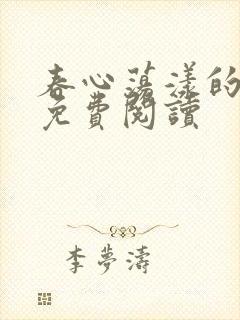 春心蕩漾的
免費閱讀
李夢濤